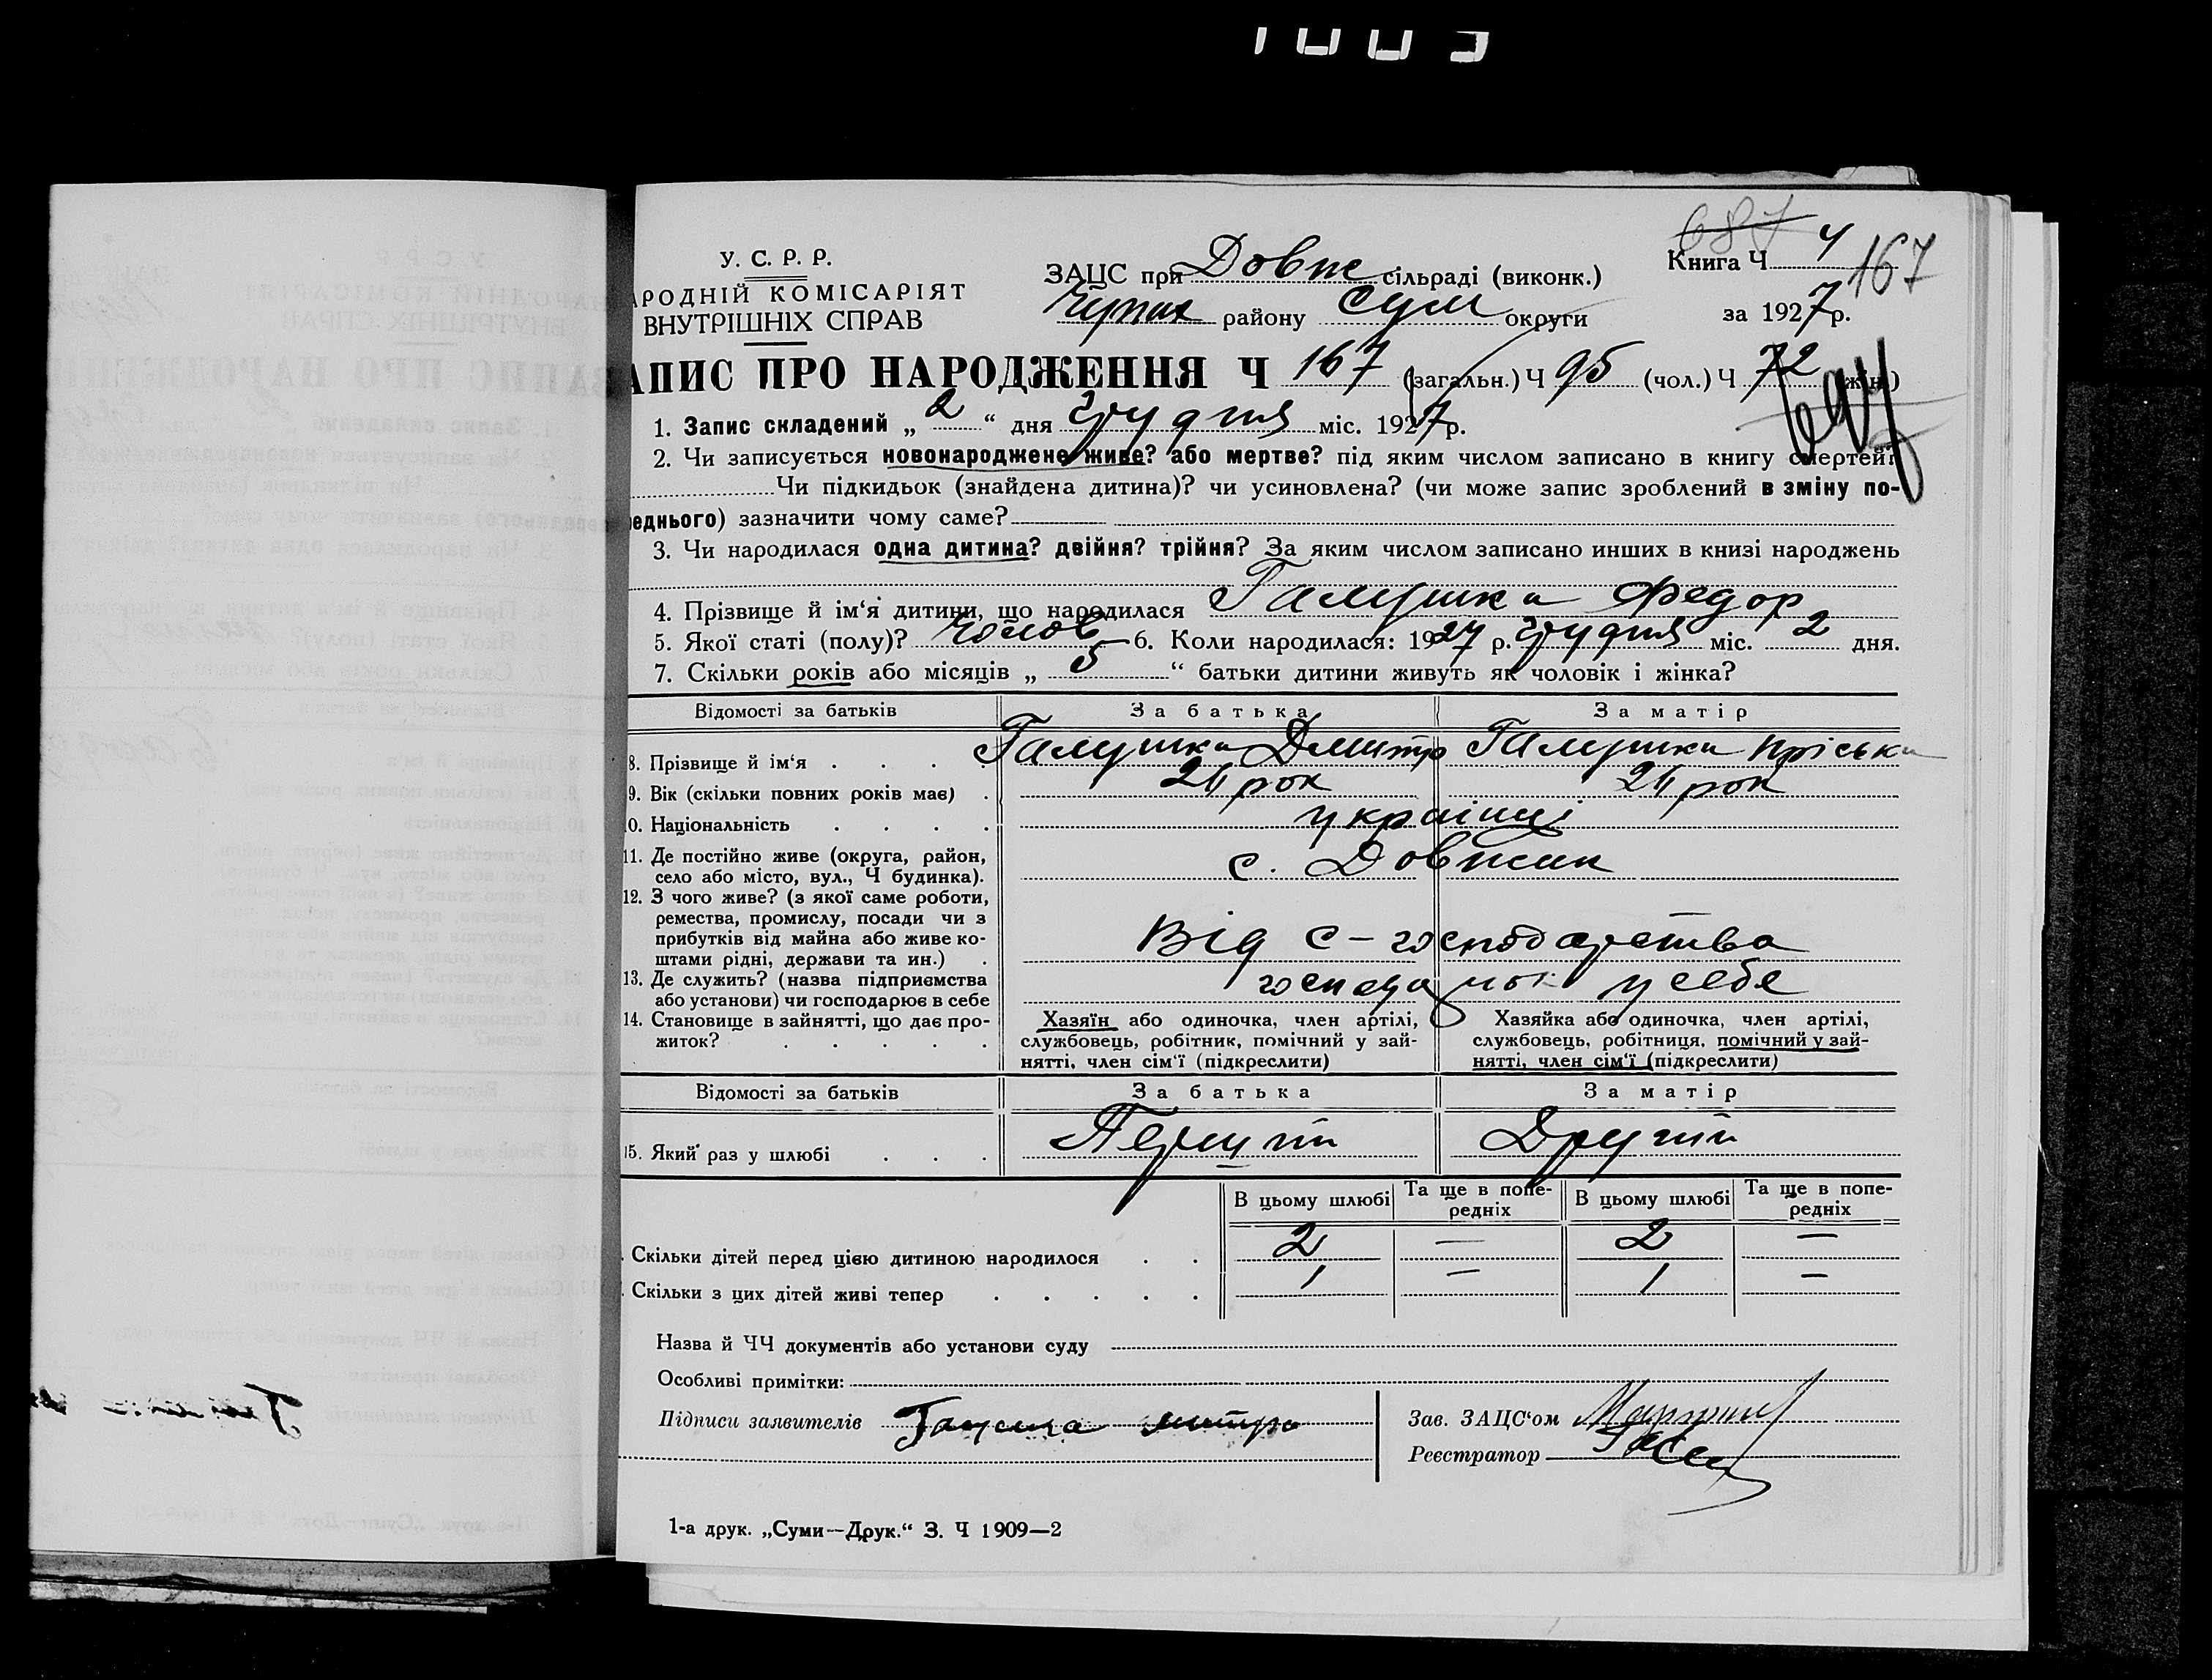 687
У. С. Р. Р.
АРОДНІЙ КОМІСАРІЯТ
ВНУТРІШНІХ СПРАВ
ЗАЦС при Довж сільраді (виконк.)
району Сум округи
Книга Ч 4
167
за 1927 р.
АПИС ПРО НАРОДЖЕННЯ Ч 167 (загальн.) Ч 95 (чол.) Ч 72 (жін.)
1. Запис складений „ 2 “ дня грудня міс. 1927 р.
2. Чи записується новонароджене живе? або мертве? під яким числом записано в книгу смертей?
Чи підкидьок (знайдена дитина)? чи усиновлена? (чи може запис зроблений в зміну по-
еднього) зазначити чому саме?
3. Чи народилася одна дитина? двійня? трійня? За яким числом записано инших в книзі народжень
4. Прізвище й ім‘я дитини, що народилася Галушка Федор
5. Якої статі (полу)? чолов 6. Коли народилася: 1927 р. грудня міс. 2 дня.
7. Скільки років або місяців „ 5 “ батьки дитини живуть як чоловік і жінка?
Відомості за батьків За батька За матір
8. Прізвище й ім‘я Галушка Дмитро Галушка Пріська
9. Вік (скільки повних років має) 24 рок 24 рок
0. Національність українці
11. Де постійно живе (округа, район,
село або місто, вул., Ч будинка). с. Довжик
12. З чого живе? (з якої саме роботи,
ремества, промислу, посади чи з
прибутків від майна або живе ко-
штами рідні, держави та ин.) Від с-господарства
13. Де служить? (назва підприємства
або установи) чи господарює в себе у себе
14. Становище в зайнятті, що дає про-
житок?
Хазяїн або одиночка, член артілі,
службовець, робітник, помічний у зай-
нятті, член сім‘ї (підкреслити)
Хазяйка або одиночка, член артілі,
службовець, робітниця, помічний у зай-
нятті, член сім‘ї (підкреслити)
Відомості за батьків За батька За матір
15. Який раз у шлюбі Перший Другий
В цьому шлюбі Та ще в попе-
редніх В цьому шлюбі Та ще в попе-
редніх
Скільки дітей перед цією дитиною народилося 2 — 2 —
Скільки з цих дітей живі тепер 1 — 1 —
Назва й ЧЧ документів або установи суду
Особливі примітки:
Підписи заявителів
Зав. ЗАЦС‘ом
Реєстратор
1-а друк. „Суми—Друк.“ З. Ч 1909—2